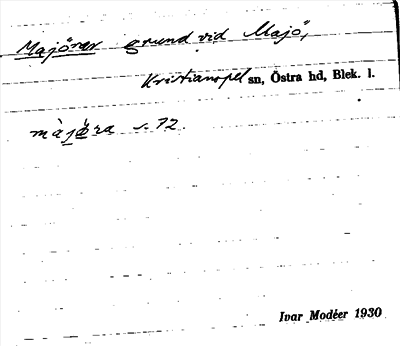 Majörar grund vid Majö,
Kristianopel sn, Östra hd, Blek. l.
màjǿra s. 72.
Ivar Modéer 1930